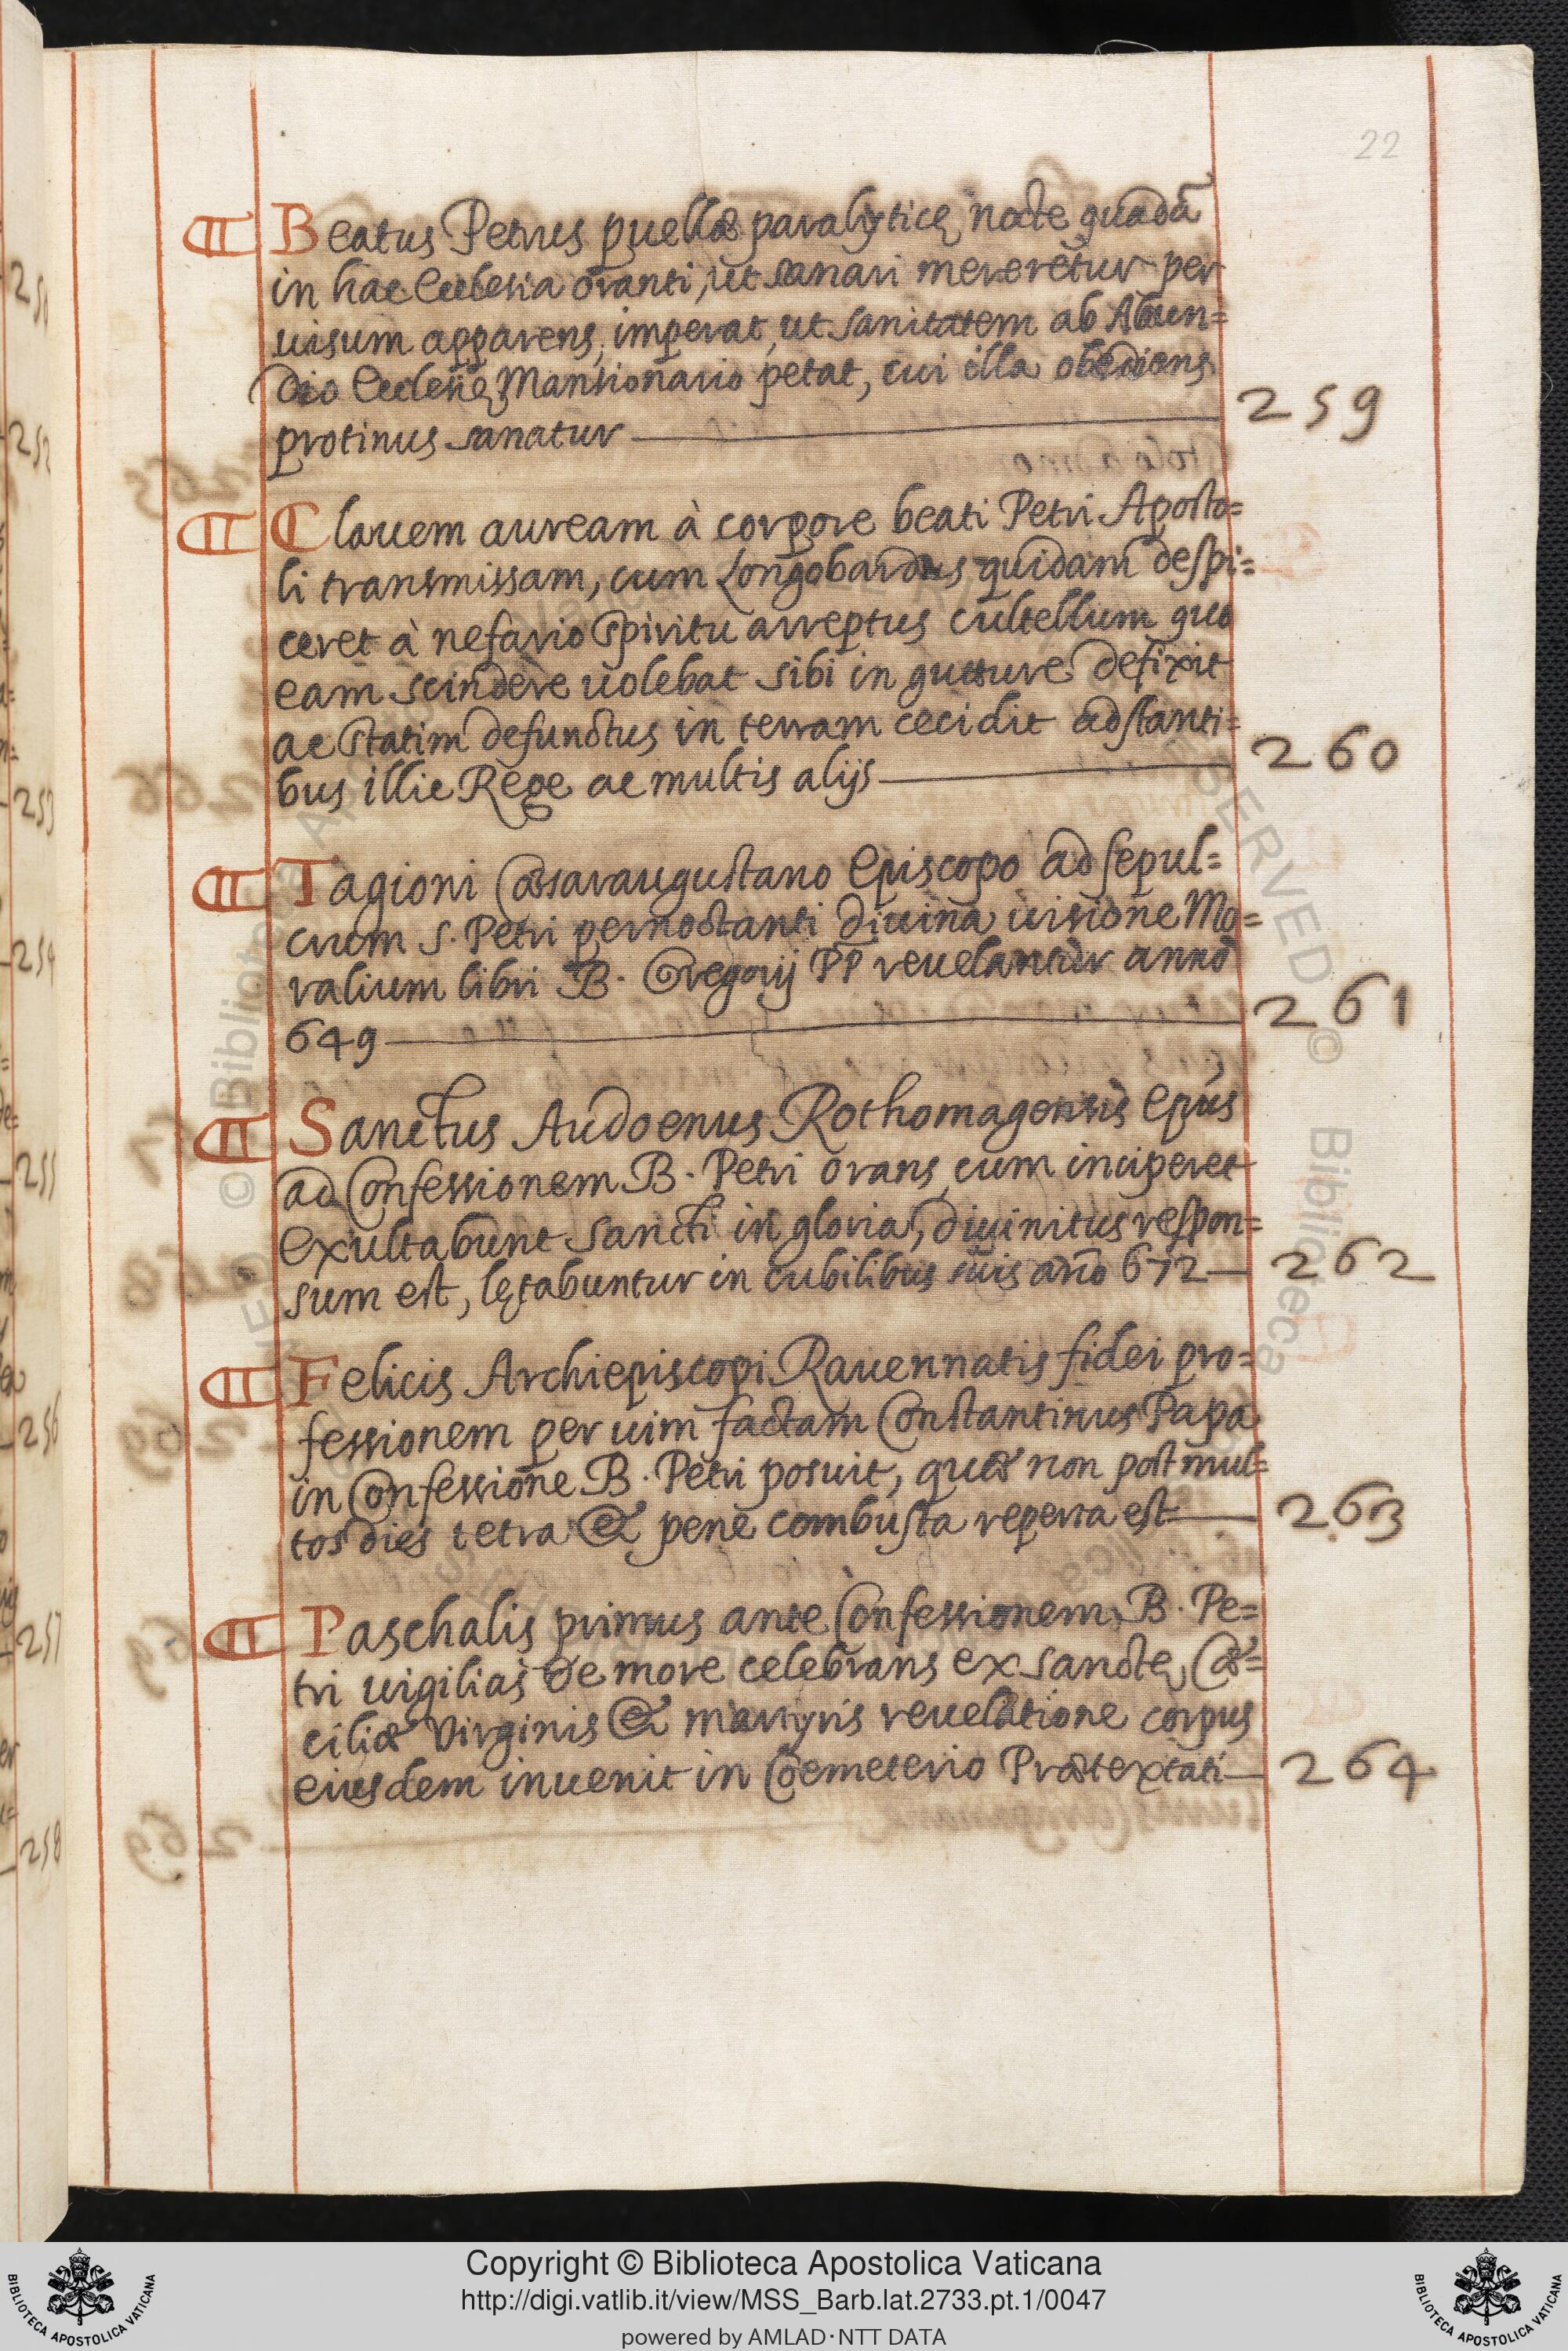 22
¶ Beatus Petrus puellæ paralyticę nocte quadā
in hac Ecclesia oranti, ut sanari mereretur per
uisum apparens, imperat, ut sanitatem ab Abun=
dio Ecclesię Mansionario petat, cui illa obediens
protinus sanatur — 259
¶ Clauem auream à corpore beati Petri Aposto=
li transmissam, cum Longobardus quidam despi=
ceret à nefario spiritu arreptus cultellum quo
eam scindere uolebat sibi in gutture defixit
ac statim defunctus in terram cecidit adstanti=
bus illic Rege ac multis alijs — 260
¶ Tagioni Cæsaraugustano Episcopo ad sepul=
crum S. Petri pernoctanti diuina uisione Mo=
ralium libri B. Gregorij PP reuelantur anno
649 — 261
¶ Sanctus Audoenus Rothomagensis Epus
ad Confessionem B. Petri orans, cum inciperet
Exultabunt sancti in gloria, diuinitus respon=
sum est, lętabuntur in cubilibus suis año 672 — 262
¶ Felicis Archiepiscopi Rauennatis fidei pro=
fessionem per uim factam Constantinus Papa
in Confessione B. Petri posuit, quæ non post mul=
tos dies tetra & pene combusta reperta est — 263
¶ Paschalis primus ante Confessionem B. Pe=
tri uigilias de more celebrans ex sanctę Cæ=
ciliæ Virginis & martyris reuelatione corpus
eiusdem inuenit in Coemeterio Prætextati — 264
252
253
254
255
256
257
258
© Biblioteca Apostolica Vaticana
Copyright © Biblioteca Apostolica Vaticana
http://digi.vatlib.it/view/MSS_Barb.lat.2733.pt.1/0047
powered by AMLAD·NTT DATA
BIBLIOTECA APOSTOLICA VATICANA
BIBLIOTECA APOSTOLICA VATICANA